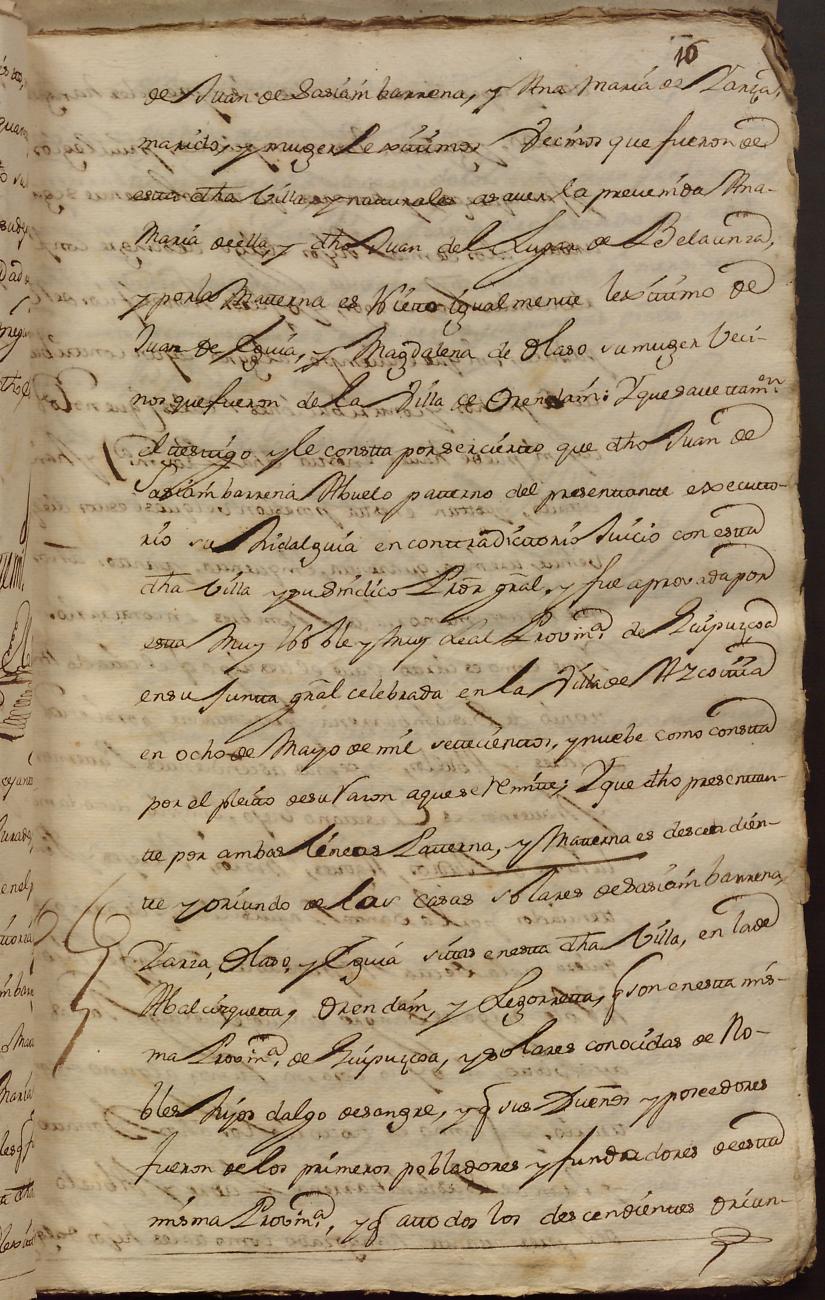 16
de Juan de Sasiambarrena, y Ana Maria de Yarza,
marido, y muger lexitimos Vecinos que fueron de
esta dha Villa y naturales asauer la preuenida Ana
Maria de ella, y dho Juan del Lugar de Belaunza,
y por la Matterna es Nietto igualmente lexitimo de
Juan de Eguia, y Magdalena de Olaso su muger Veci-
nos que fueron de la Villa de Orendain: Y que saue ttamvn.
el testigo y le constta por ser cierto que dho Juan de
Sasiambarrena Abuelo patterno del presenttante executto-
rio su Hidalguia en conttradicttorio Juicio con estta
dha Villa y su Sindico Pror gral, y fue aprovada por
estta Muy Noble y Muy Leal Provina. de Guipuzcoa
en su Juntta gral celebrada en la Villa de Azcoittia
en ocho de Mayo de mil settecienttos, y nuebe como constta
por el pleitto de su razon a que se remitte; Y que dho presenttan-
te por ambas lineas Patterna, y Matterna es descendien-
te y oriundo de las casas solares de Sasiambarrena,
Yarza, Olaso, y Eguia sittas en estta dha Villa, en la de
Abalcizquetta, Orendain, y Legorretta, q son en estta mis-
ma Provina. de Guipuzcoa, y solares conocidas de No-
bles hijos dalgo de sangre, y q sus Dueños y poseedores
fueron de los primeros pobladores y fundadores de estta
misma Provina., y q a ttodos los descendienttes oriun-